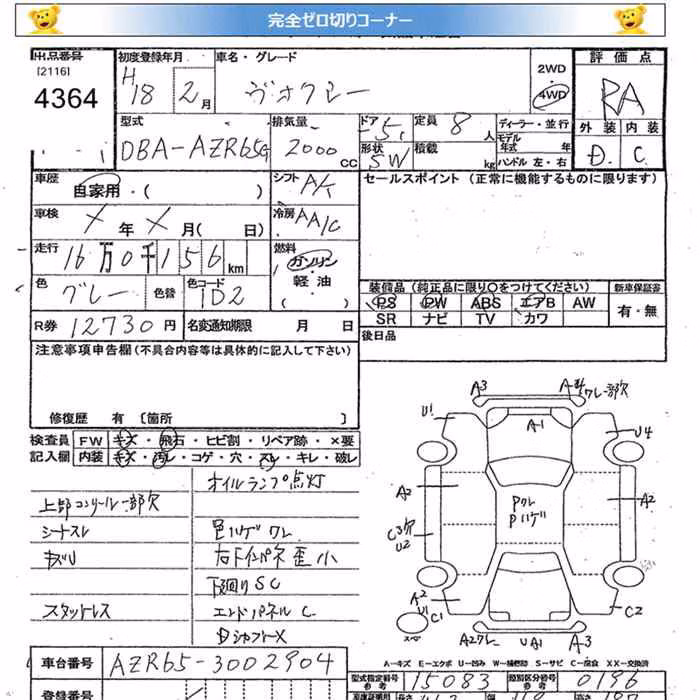 完全ゼロ切りコーナー
出品番号
[2116]
4364
初度登録年月
H18 2月
車名・グレード
ヴォクシー
2WD
4WD
評価点
RA
外装 内装
D. C.
型式
DBA-AZR65G
排気量
2000 CC
ドア 5
形状 SW
定員 8人
積載 kg
ディーラー・並行
モデル年式 年
ハンドル 左・右
車歴
自家用・( )
シフト A/
セールスポイント (正常に機能するものに限ります)
車検
X 年 X 月( 日)
冷房 AA/C
走行
16万0千156km
燃料
ガソリン
軽油
( )
色 グレー 色替 色コード 1D2
装備品 (純正品に限り○をつけてください)
新車保証書
PS PW ABS エアB AW
SR ナビ TV カワ
有・無
R券 12730円 名変通知期限 月 日
後日品
注意事項申告欄(不具合内容等は具体的に記入して下さい)
修復歴 有 [箇所 ]
検査員 FW キズ・飛石・ヒビ割・リペア跡・×要
記入欄 内装 キズ・汚レ・コゲ・穴・スレ・キレ・破レ
オイルランプ点灯
上部コンソール一部欠
シートスレ
色ハゲ ワレ
キズU
右ドインパネ歪小
下廻りSC
スタットレス
エンドパネルC
DシャフトX
A3
A4ワレ一部欠
U1
A1
U4
A2
Pワレ
Pハゲ
A2
C3穴
U2
A2
U1
C1
C2
スペア
A2ワレ UA1 A3
A-キズ E-エクボ U-凹み W-補修跡 S-サビ C-腐食 XX-交換済
車台番号 AZR65-3002904
型式指定番号 15083 類別区分番号 0196
登録番号